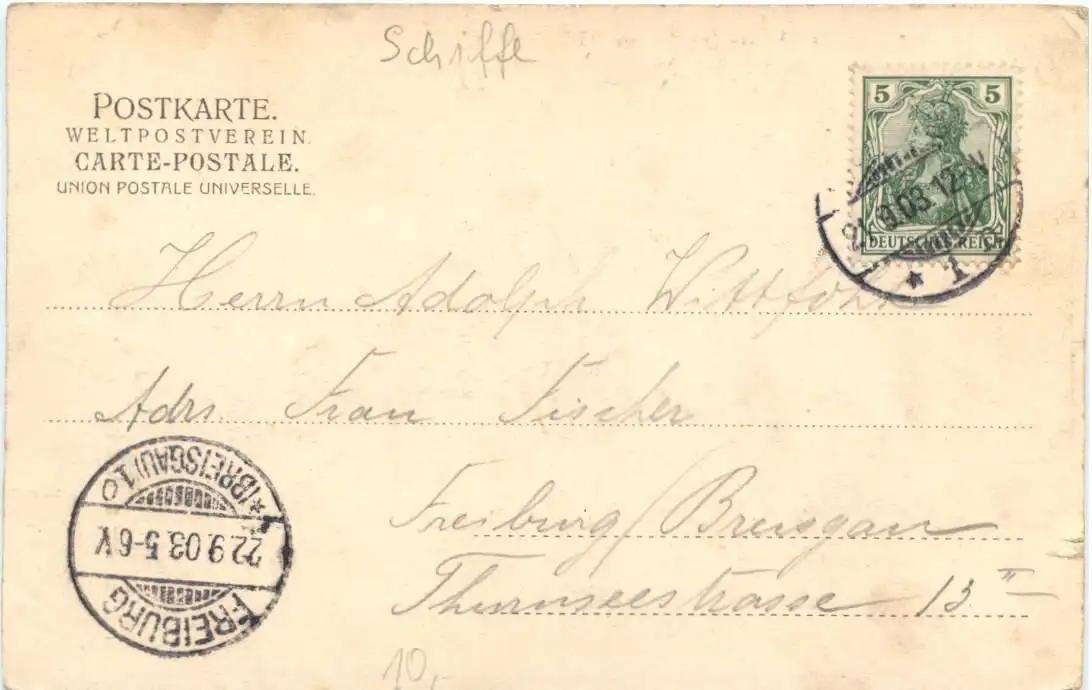 Schiffe
POSTKARTE.
WELTPOSTVEREIN.
CARTE-POSTALE.
UNION POSTALE UNIVERSELLE.
5 5
DEUTSCHES REICH
21.9.03.12-N
* 1
Herrn Adolph Wittfoht
Adrs. Frau Fischer
Freiburg / Breisgau
Thurnseestrasse 13 II
FREIBURG
22.9.03.5-6V
*(BREISGAU)1.
10,-